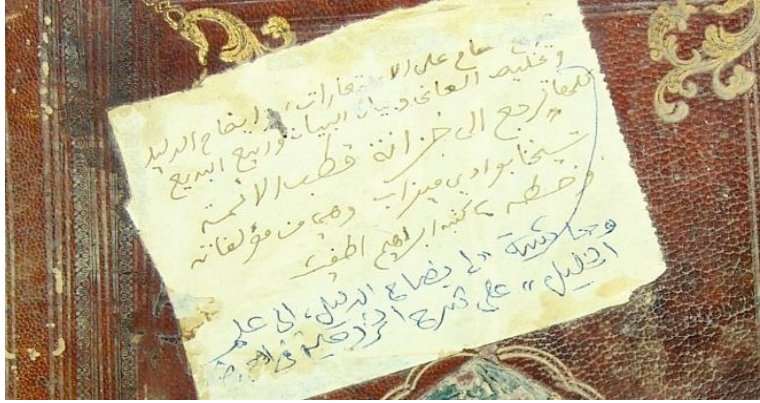 على الاستعارات، وايضاح الدليل
وتخليص العانى وبيان البيان وربيع البديع
كلها ترجع الى خزانة قطب الائمة
شيخنا بوادي ميزاب وهي من مؤلفاته
وخطه كتبه ابراهيم اطفيش
وحاشية "لايضاح الدليل، الى علم
الخليل" على شرح الخزرجية في